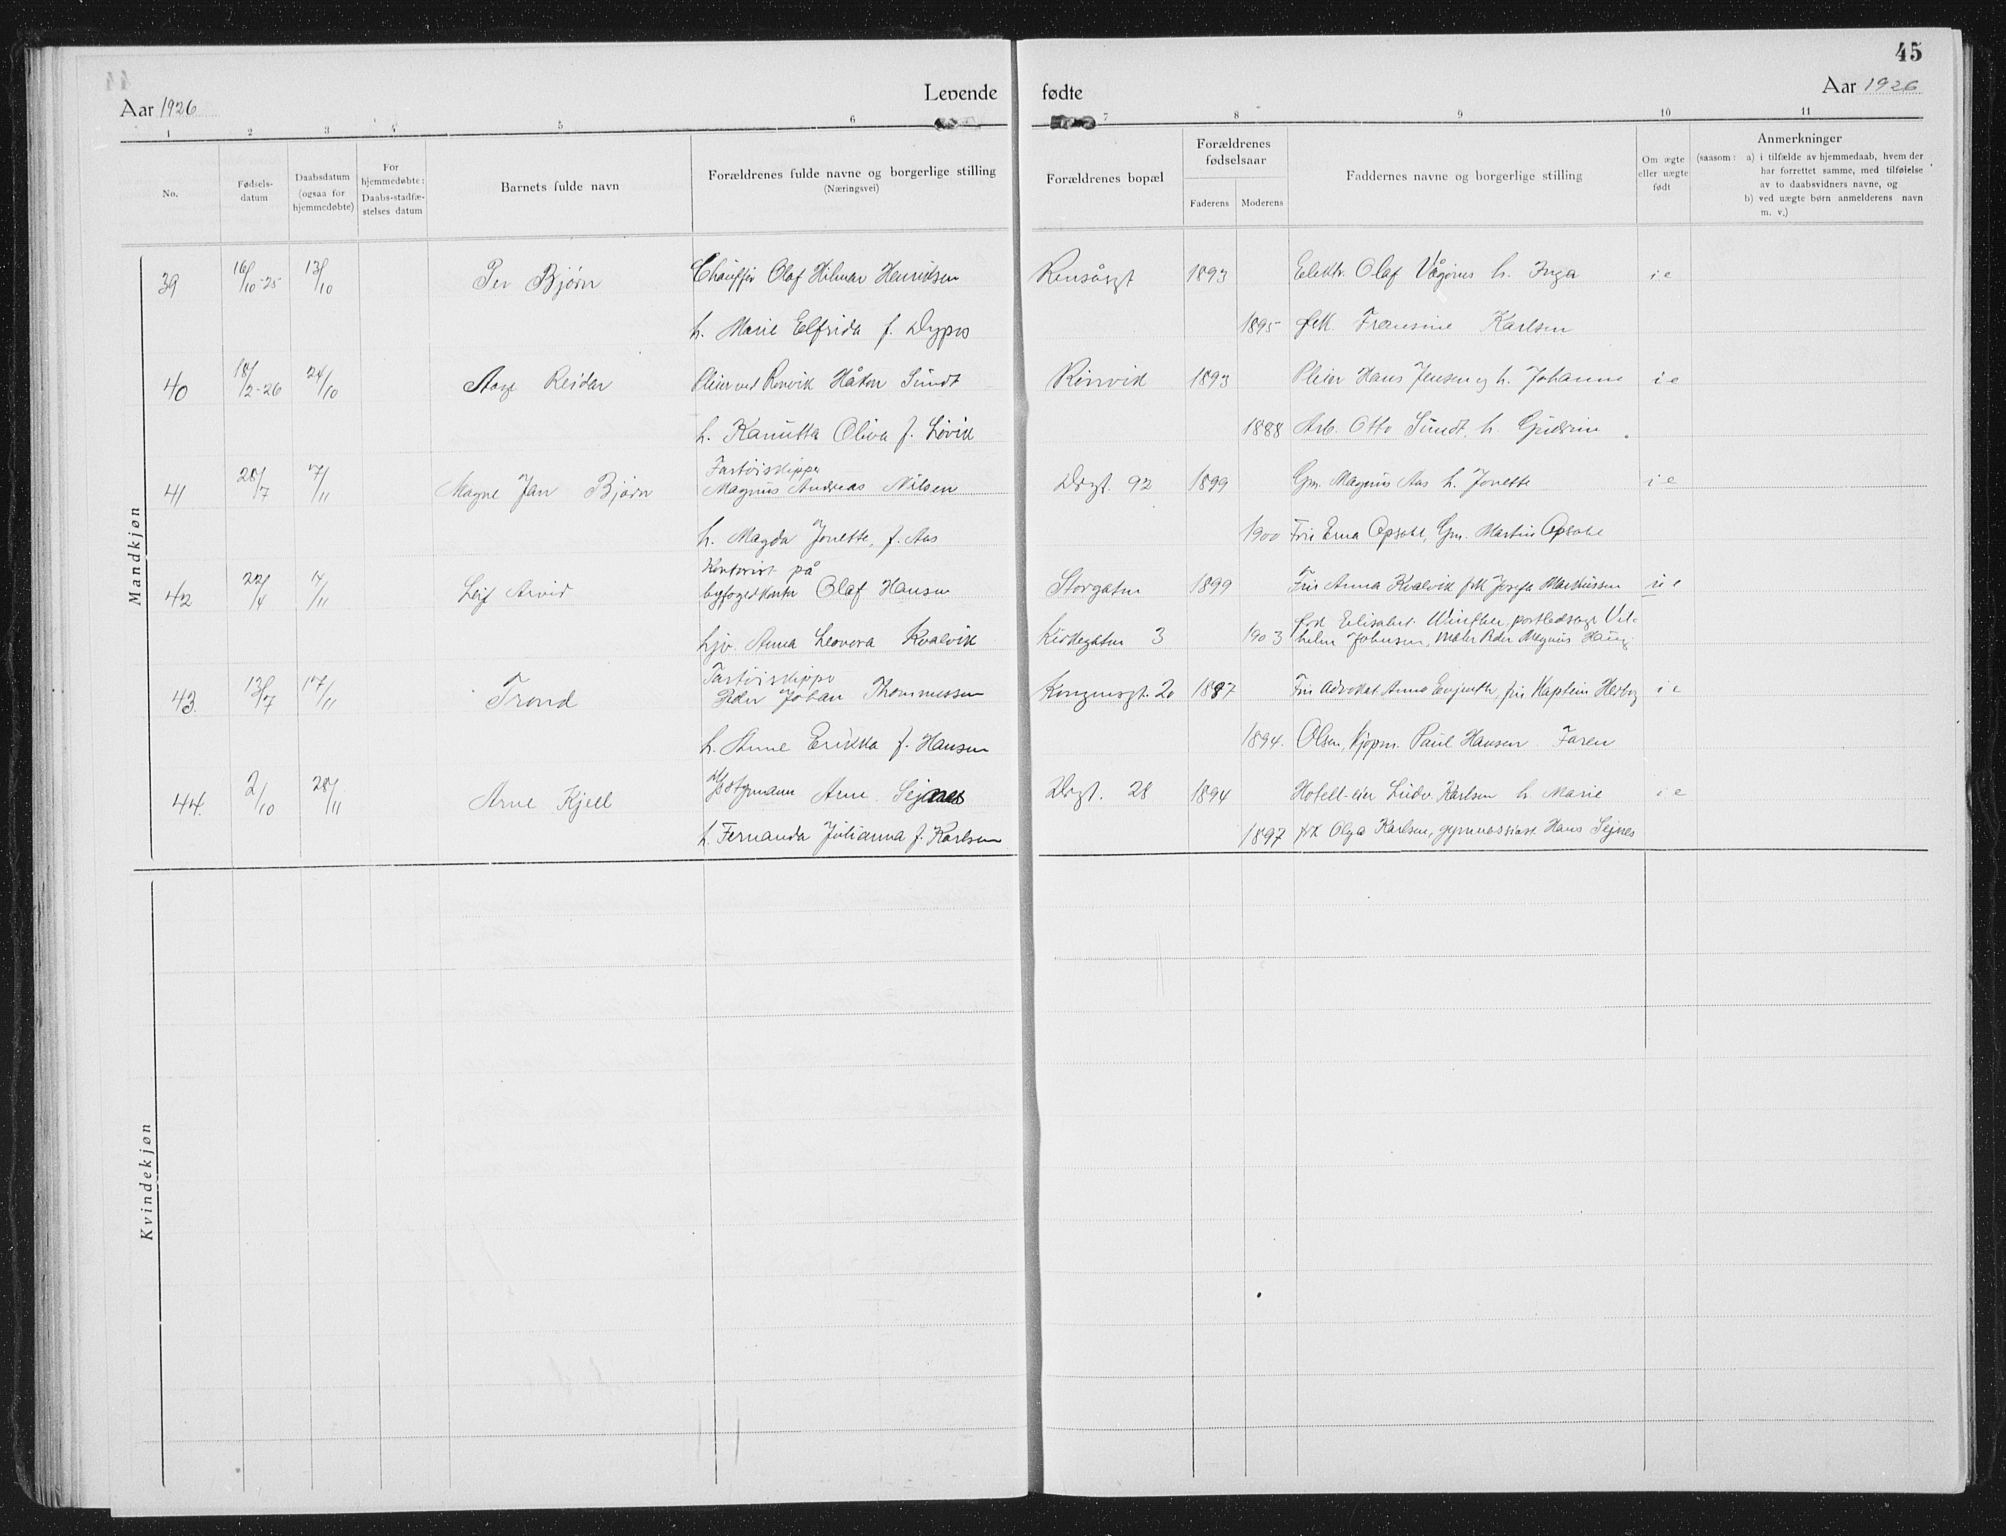 45
Aar 1926 Levende fødte Aar 1926
1 2 3 4 5 6 7 8 9 10 11
No.
Fødsels-
datum
Daabsdatum
(ogsaa for
hjemmedøbte)
For
hjemmedøbte:
Daabs-stadfæ-
stelses datum
Barnets fulde navn
Forældrenes fulde navne og borgerlige stilling
(Næringsvei)
Forældrenes bopæl
Forældrenes
fødselsaar
Faderens Moderens
Faddernes navne og borgerlige stilling
Om ægte
eller uægte
født
Anmerkninger
(saasom: a) i tilfælde av hjemmedaab, hvem der
har forrettet samme, med tilføielse
av to daabsvidners navne, og
b) ved uægte børn anmelderens navn
m. v.)
Mandkjøn
39 16/10-25 13/10 Per Bjørn Chauffør Olaf Hilmar Henriksen Rensåsgt 1893 Elektr. Olaf h. Inga i e
h. Marie Elfrida f. 1895 Fransine Karlsen
40 18/2-26 24/10 Aage Reidar Pleier ved Rønvik Håkon Sundt Rønvik 1893 Pleier Hans Jensen og h. Johanne i e
h. Kanutta Oliva f. Løvik 1888 Arb. Otto Sundt, h. Gudrun
41 28/7 7/11 Magne Jan Bjørn Fartøiskipper
Magnus Andreas Nilsen Drgt. 92 1899 Gm. Magnus Aas h. Jonette i e
h. Magda Jonette, f. Aas 1900 Fru Erna Opsahl, Gm. Martin Opsahl
42 22/4 14/11 Leif Arvid Kontorist på
byfogedkontor Olaf Hansen Storgaten 1899 Fru Anna Kvalvik frk Josefa Markussen u e
pv. Anna Leonora Kvalvik Kirkegaten 3 1903 Elisabet Winther, Vil-
helm Johansen, Peder Magnus Haug
43. 13/7 17/11 Trond Fartøiskipper
Peder Johan Thommessen Kongensgt. 20 1887 Fru Advokat Anna fru Kaptein i e
h. Anne Erikka f. Hansen 1894. Olsen, kjøpm. Paul Hansen Faren
44. 2/10 28/11 Arne Kjell Arne Sejnes Drgt. 28 1894 Hotell-eier Ludv. Karlsen h. Marie i e
h. Fernanda Julianna f. Karlsen 1897 frk Olga Karlsen, gymnasiast Hans Sejnes
Kvindekjøn